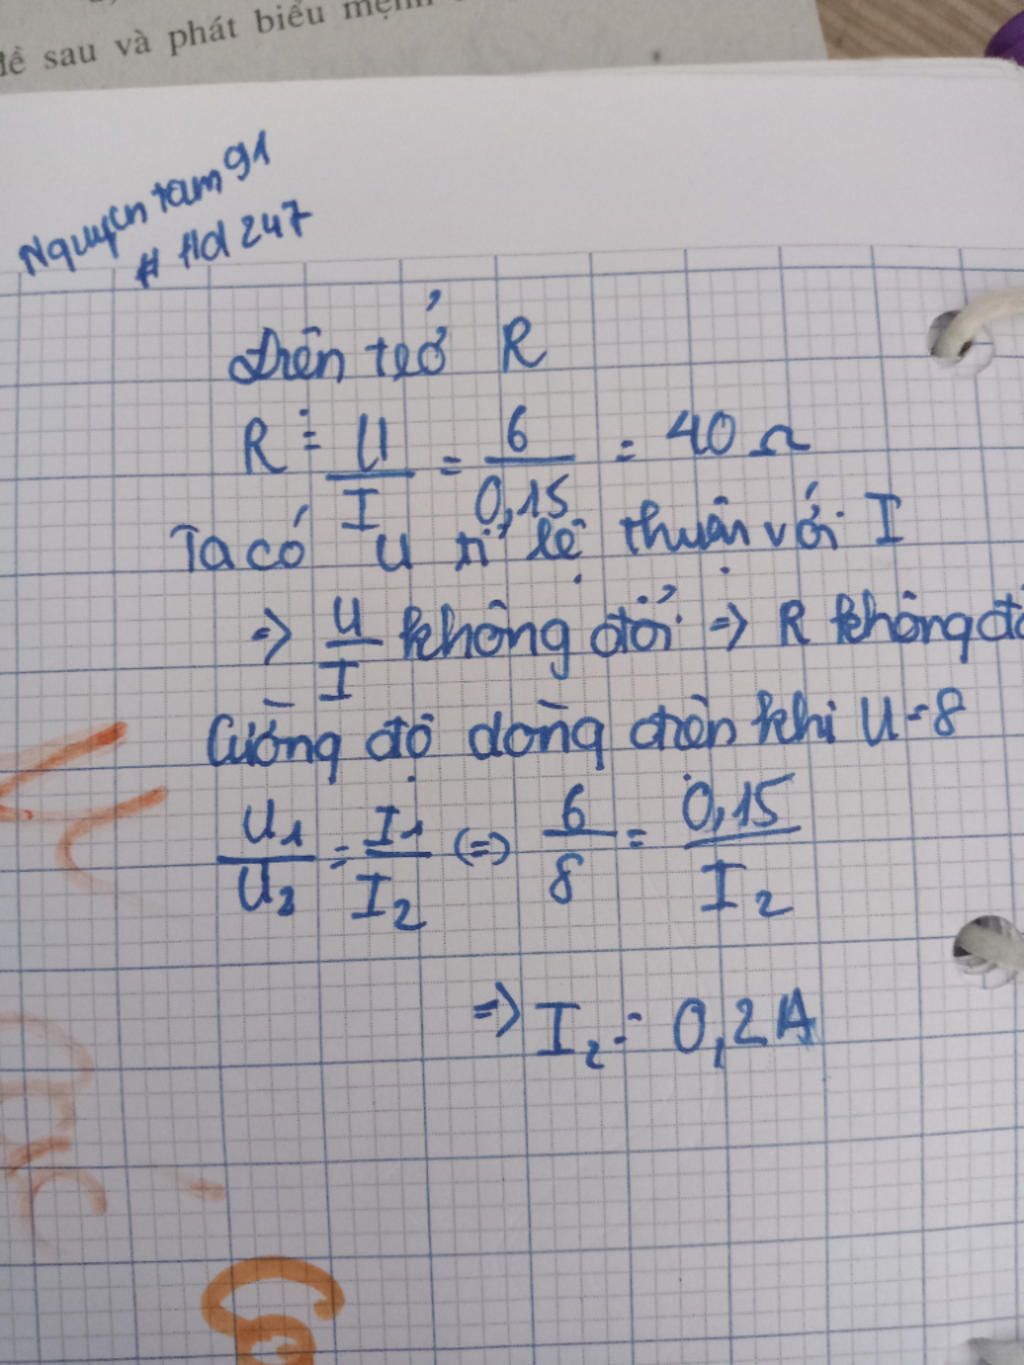 đề sau và phát biểu mệnh
Nguyen tam 91
# Hd 247
Điện trở R
R = U/I = 6/0,15 = 40 Ω
Ta có U tỉ lệ thuận với I
=> U/I không đổi => R không đổ
Cường độ dòng điện khi U = 8
U1/U2 = I1/I2 (=) 6/8 = 0,15/I2
=> I2 = 0,2A